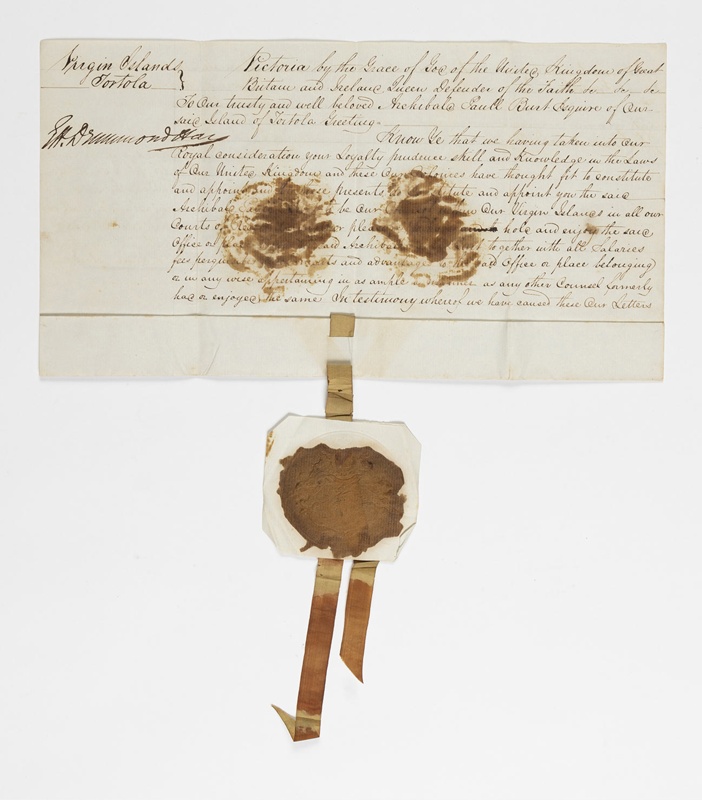 Virgin Islands
Tortola
Victoria by the Grace of God of the United Kingdom of Great
Britain and Ireland Queen Defender of the Faith &c &c &c
To Our trusty and well beloved Archibald Paull Burt Esquire of Our
said Island of Tortola Greeting
EH. Drummond Hay
Know Ye that we having taken into Our
Royal consideration your Loyalty prudence skill and Knowledge in the Laws
of Our United Kingdom and these Our have thought fit to constitute
and appoint presents and appoint you the said
Archibald be Our Our Virgin Islands in all our
Courts of or hold and enjoy the said
Office or said Archibald together with all Salaries
fees and advantages said Office or place belonging
or in any wise appertaining in as ample as any other Counsel formerly
had or enjoyed the same In testimony whereof we have caused these Our Letters